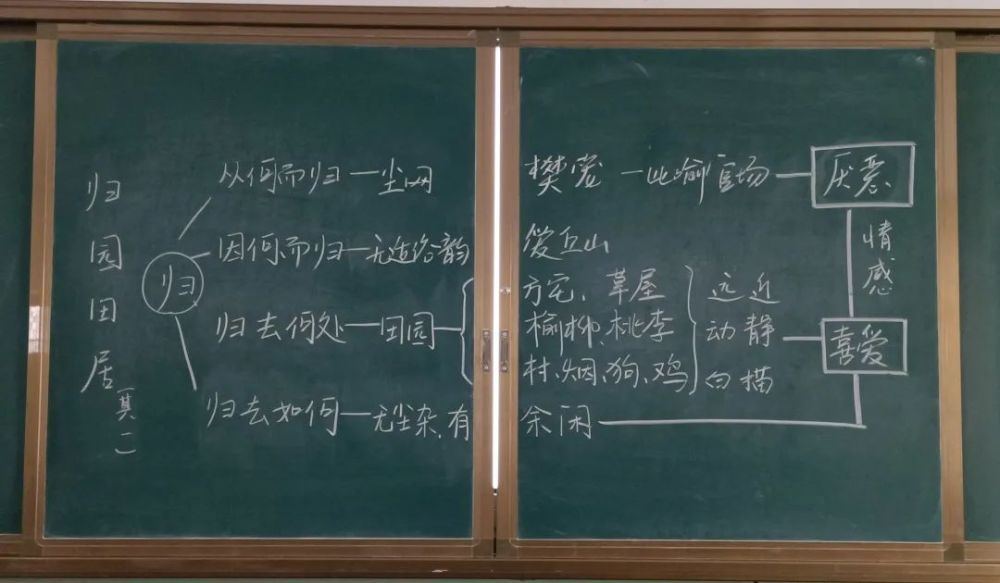 归园田居其一
归
从何而归—尘网 樊笼—比喻官场—厌恶
因何而归—无适俗韵 爱丘山
归去何处—田园 方宅、草屋 远近
榆柳、桃李 动静—喜爱
村、烟、狗、鸡 白描
归去如何—无尘杂、有余闲
情感